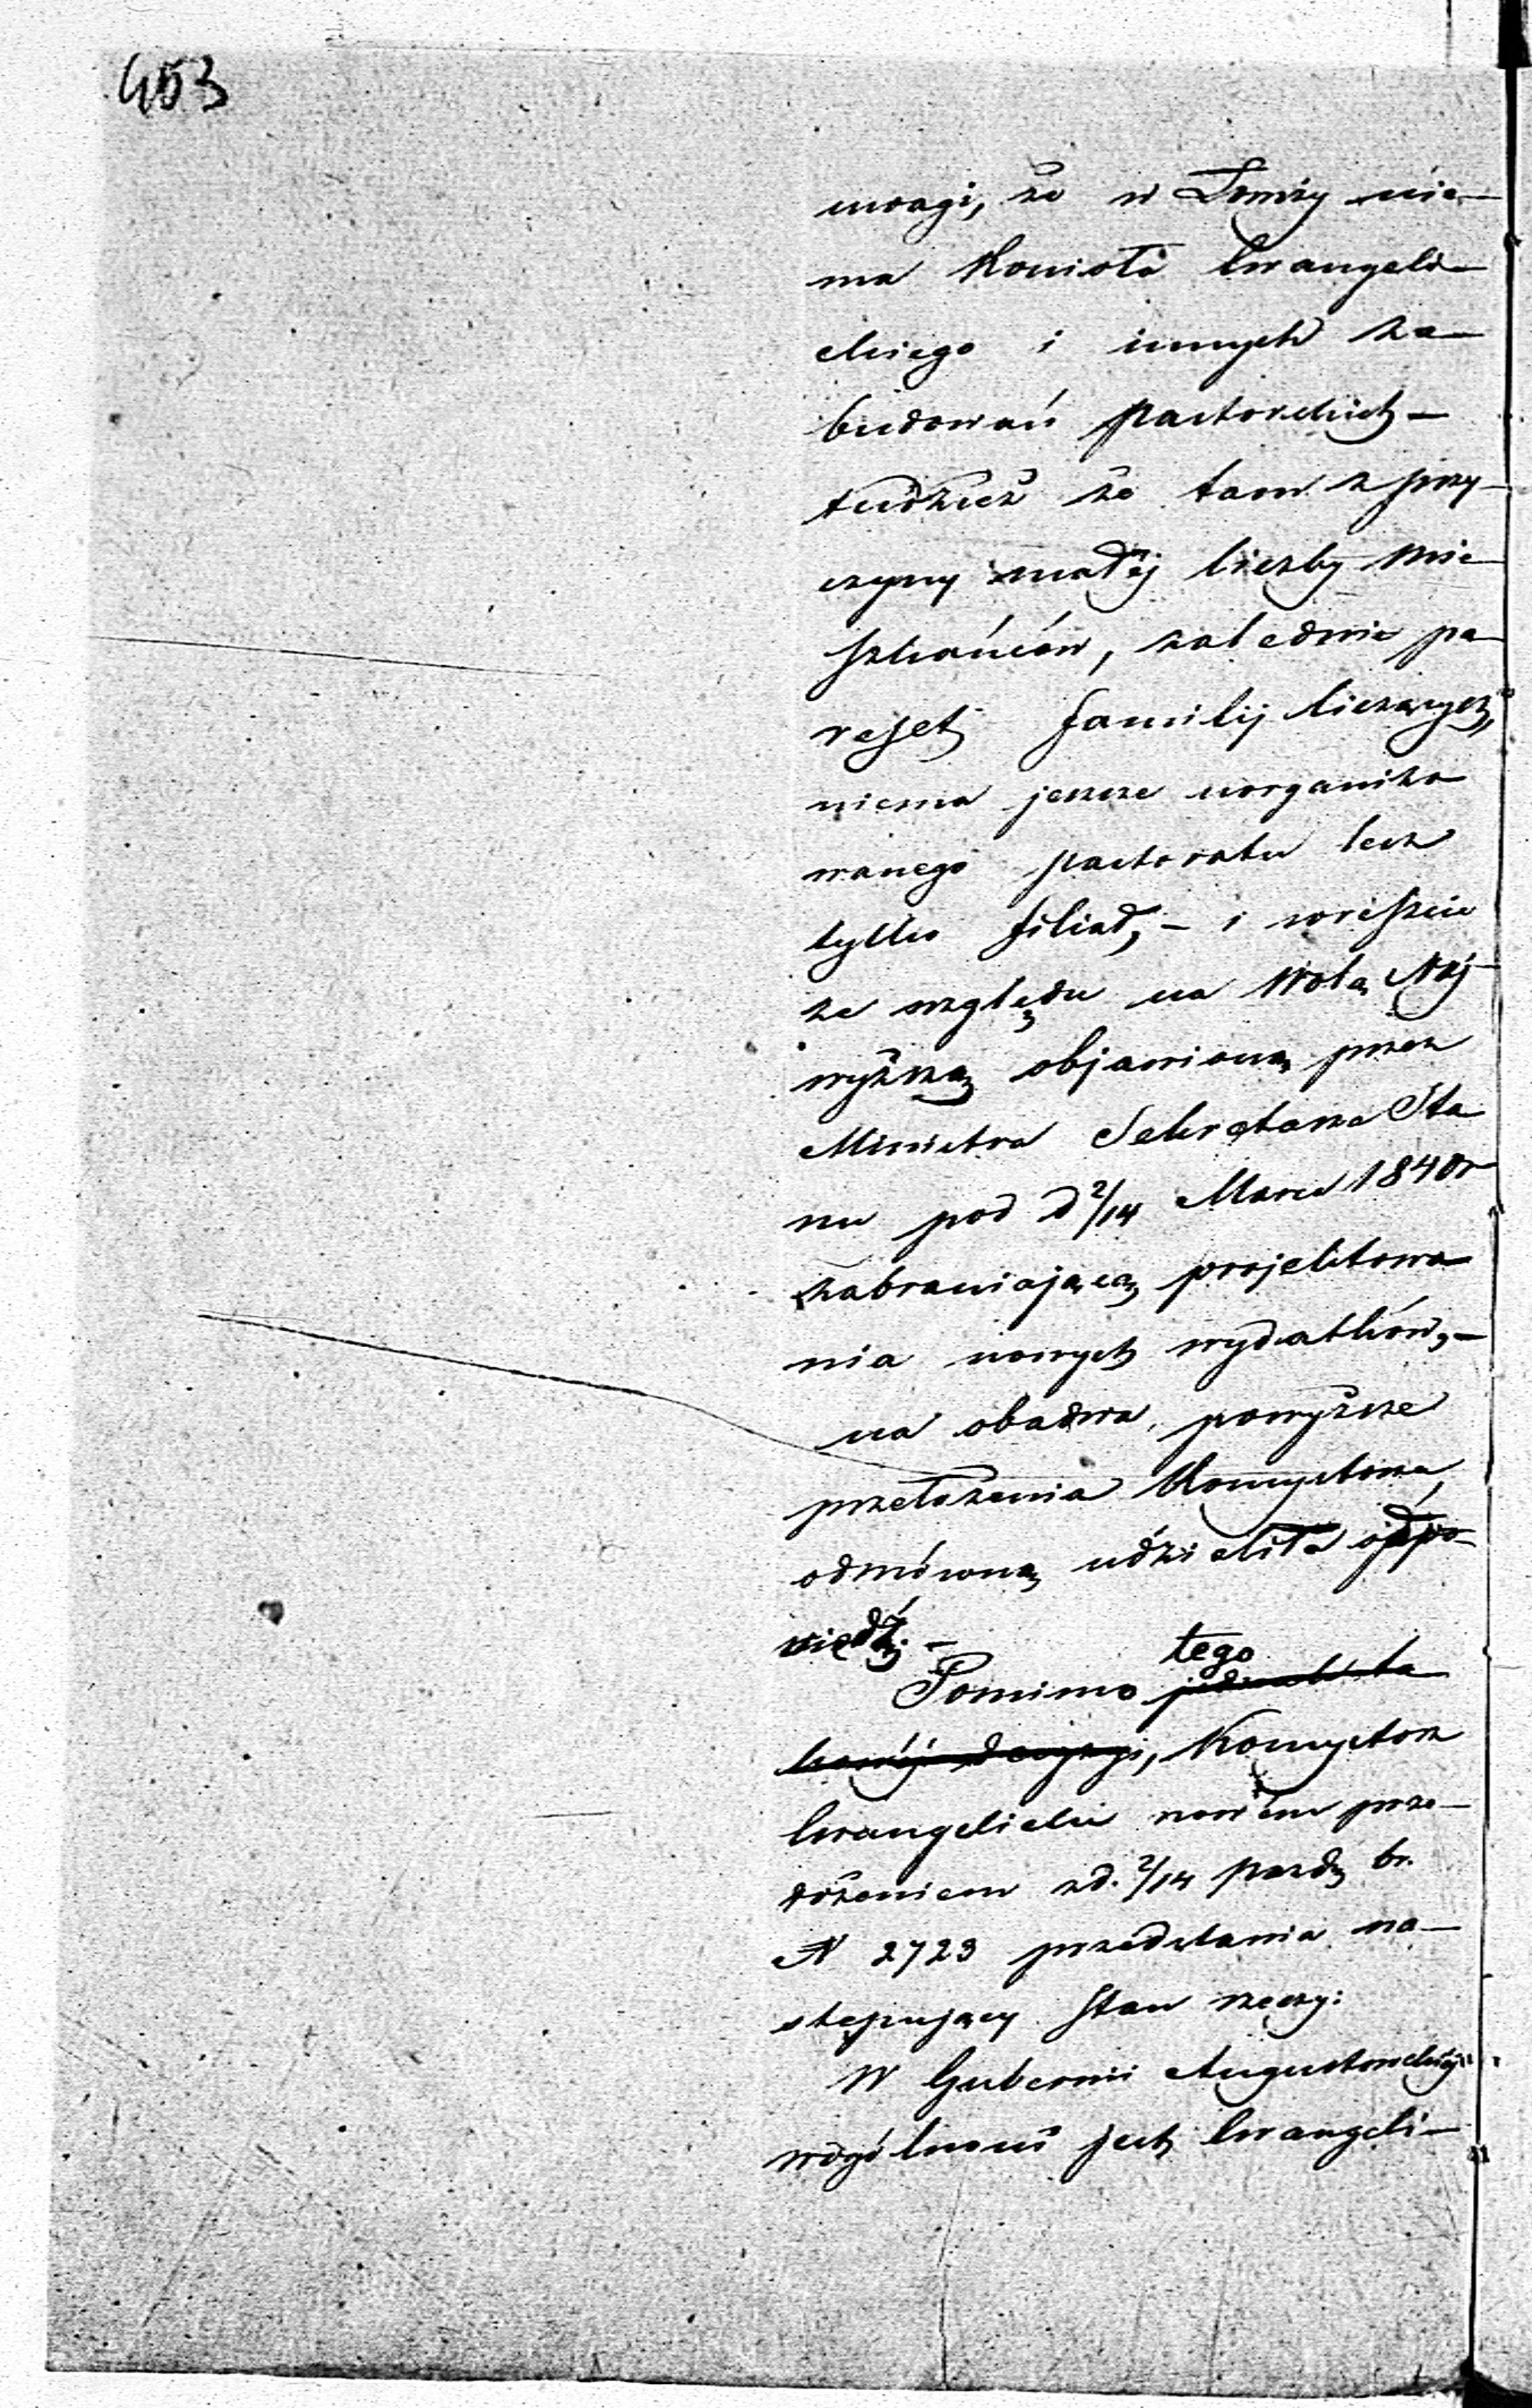 453
uwagi, że w Łomży nie-
ma Kościoła Ewangeli-
ckiego i innych za-
budowań pastorskich –
tudzież że tam z przy-
czyny małéj liczby mie-
szkańców, zaledwie pa-
ręset familij liczących,
niema jeszcze uorganizo
wanego pastoratu lecz
tylko filiał, – i wreszcie
ze względu na Wolą Naj-
wyższą objawioną przez
Ministra Sekretarza Sta
nu pod d 2/14 Marca 1840 r
zabraniającą projektowa
nia nowych wydatków, –
na obadwa powyższe
przełożenia Konsystorza,
odmówną udzieliła odpo-
wiedź. –
tego
Pomimo jednak ta
kowéj decyzyi, Konsystorz
Ewangelicki nowém prze-
łożeniem z d. 2/14 Paźdz br.
N 2723 przedstawia na-
stępujący stan rzeczy:
W Gubernii Augustowskiéj
wogólności jest Ewangeli-